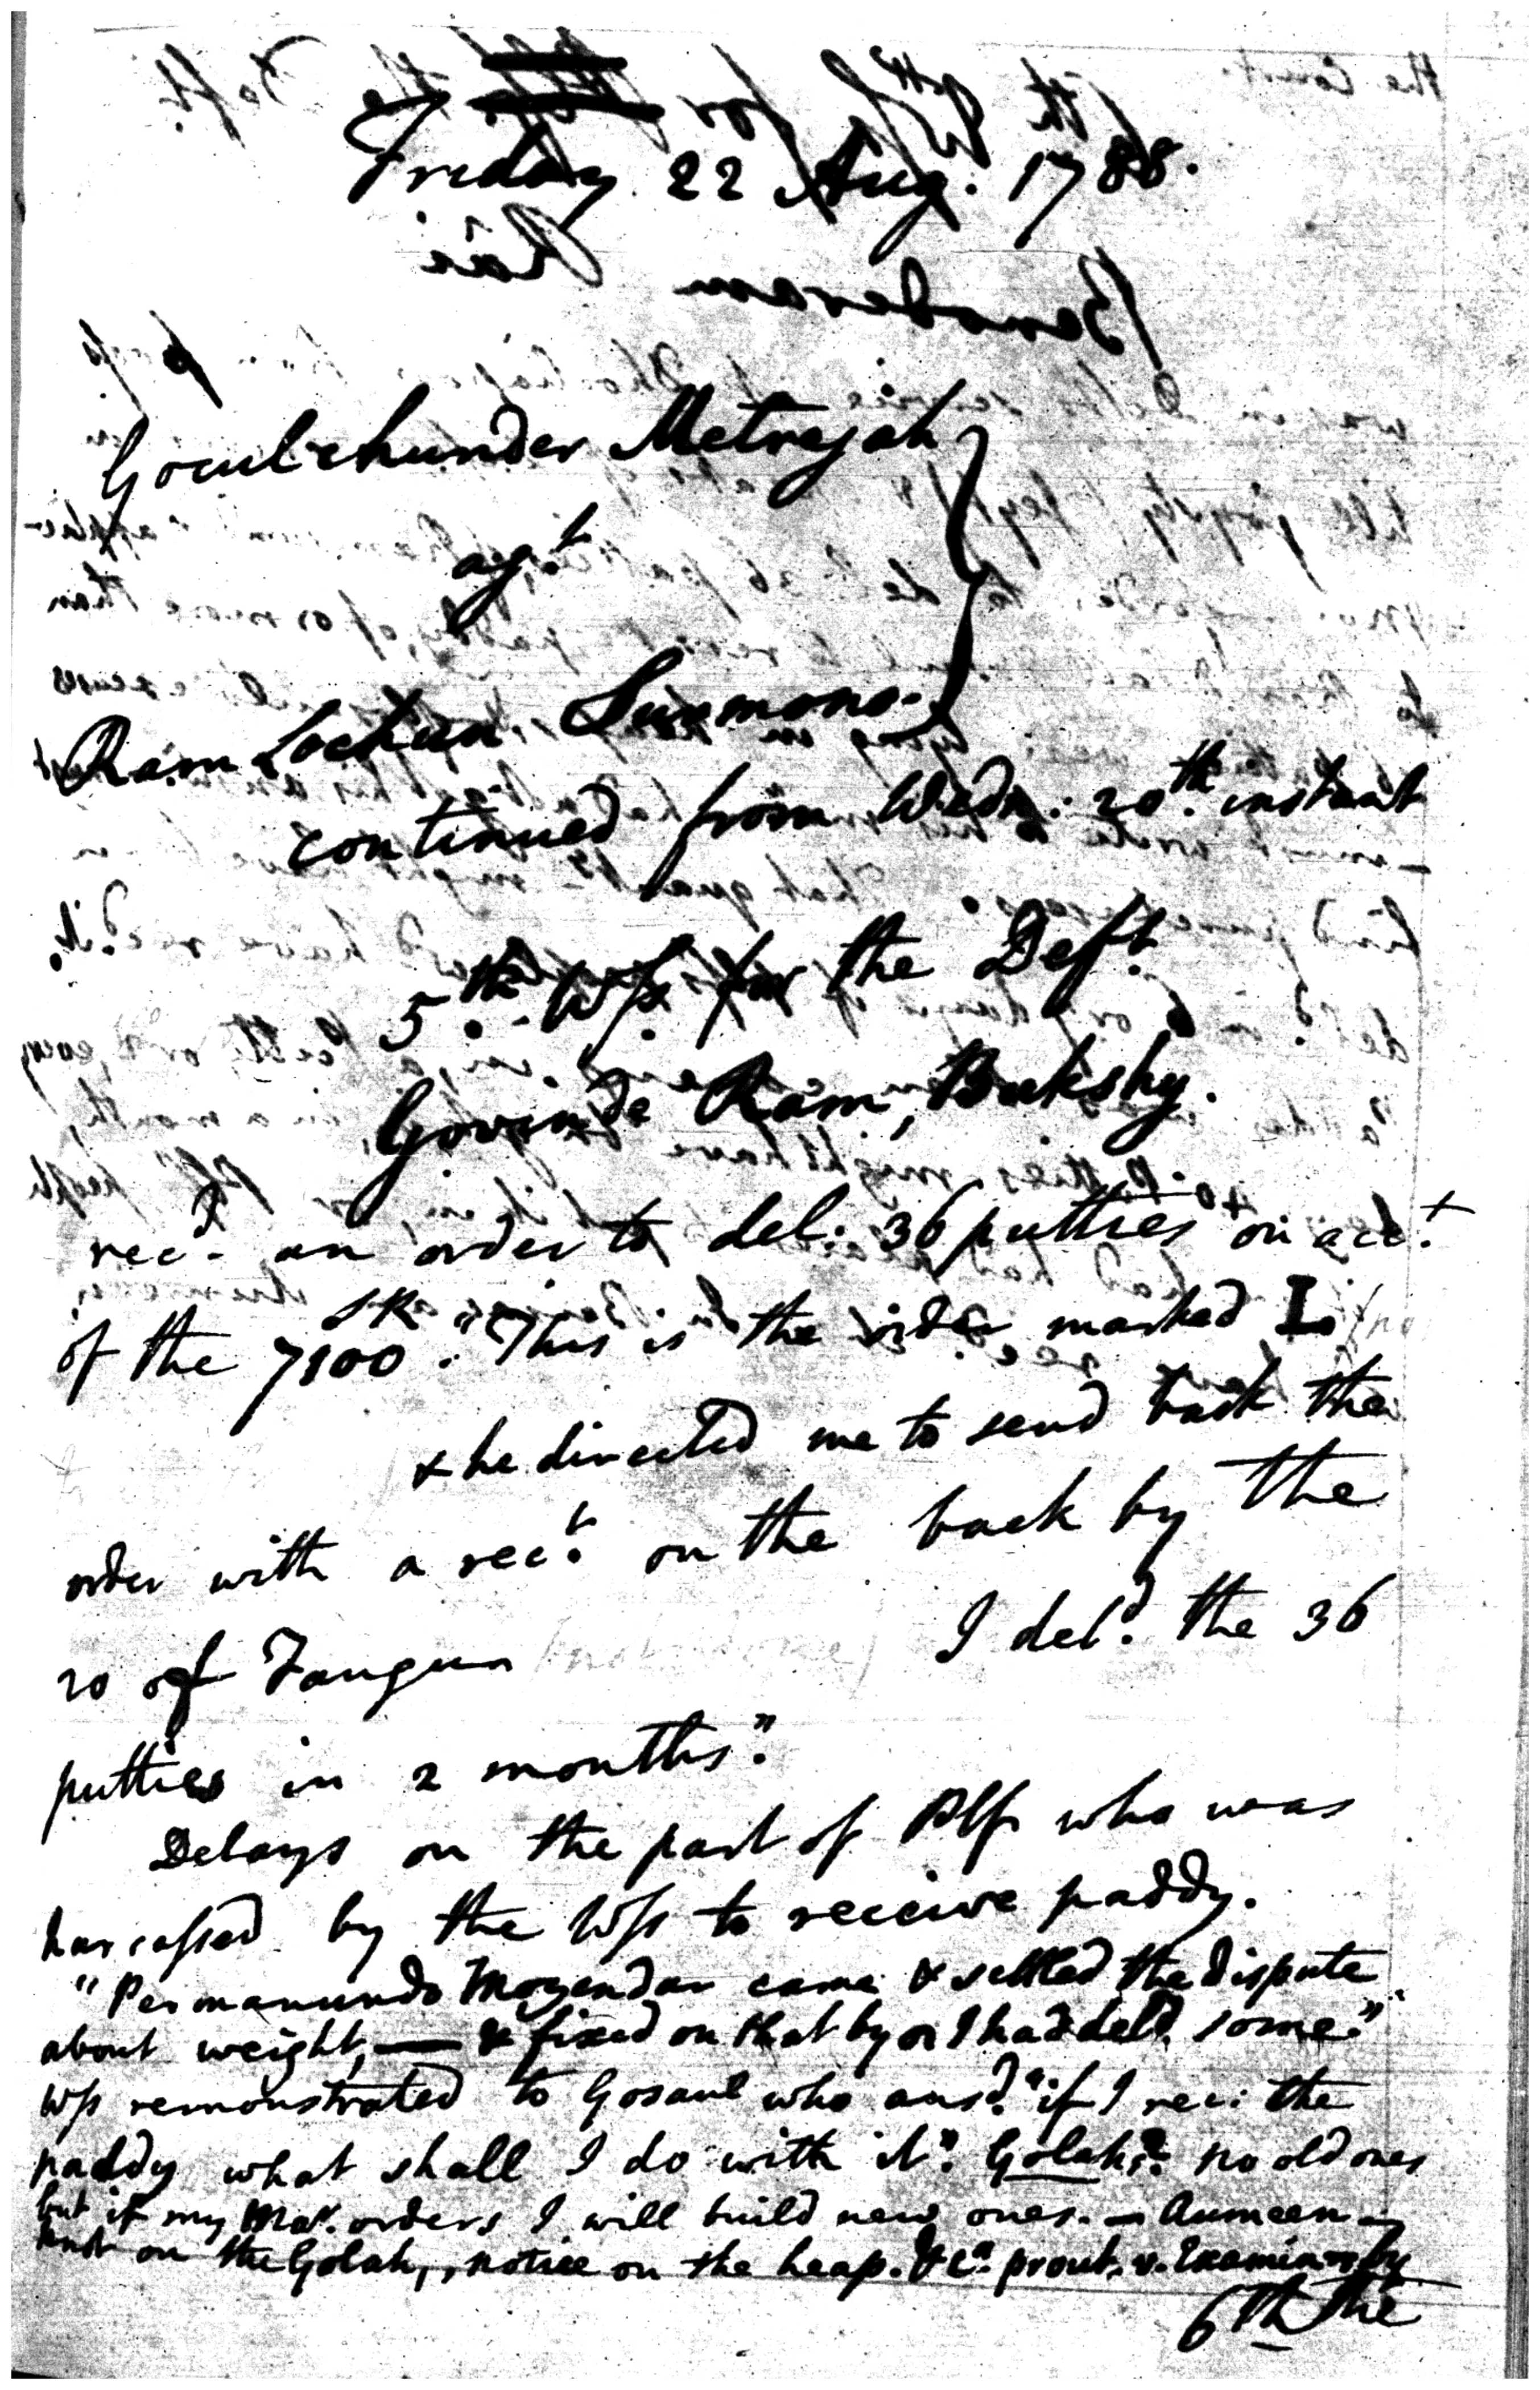 Friday 22 Aug. 1788.
Goculchunder Metrejah
agt.
Ram Lochun Surmono.
continued from Wedn: 20th. instant
5th. Wss. for the Deft.
Govinde Ram, Bukshy.
recd. an order to del: 36 putties on acct.
of the 7100 SR. "This is the order marked I.
& he directed me to send back the
order with a rect. on the back by the
20 of Faugun I deld. the 36
putties in 2 months."
Delays on the part of Plf who was
harrassed by the Wss to receive paddy.
"Permanundo Mozendar came & settled the dispute
about weight, — & fixed on that by wh I had deld. some."
Wss remonstrated to Gosaul who ansd. "if I rec: the
paddy what shall I do with it". Golahs? no old ones
but if my Mar. orders I will build new ones. — Aumeen —
on the Golah, notice on the heap. &ca. prout. v. Examinn by
6th the